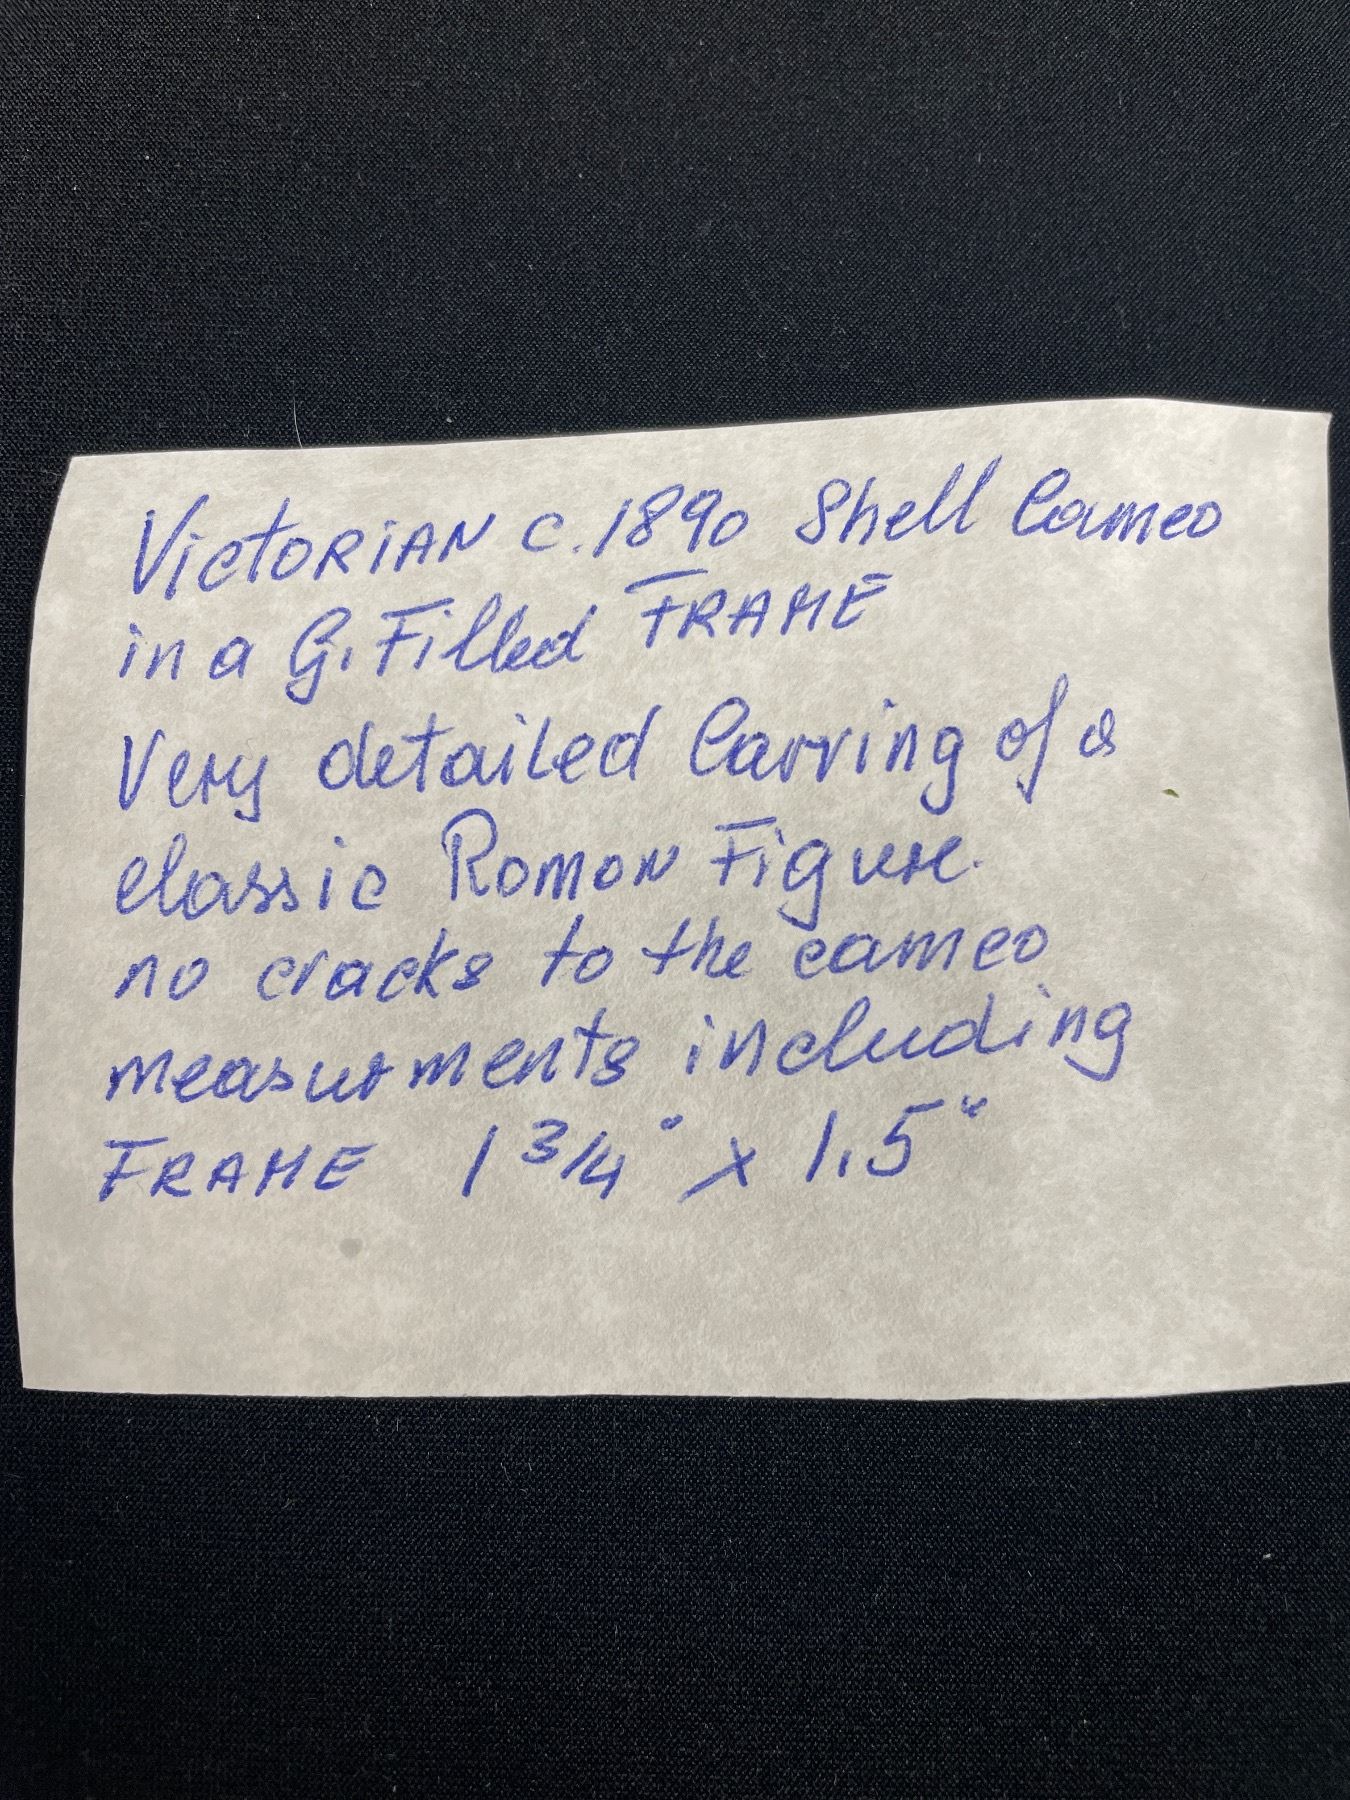 Victorian c. 1890 Shell Cameo
in a G. Filled FRAME
Very detailed Carving of a
classic Roman Figure.
no cracks to the cameo
measurments including
FRAME 1 3/4" x 1.5"